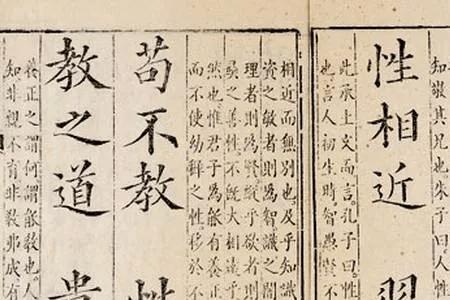 知敬其兄也朱子曰人性
性相近習
此承上文而言。孔子曰。性
也言人初生時智愚賢不
相近而無別也。及乎知識
資之敏者則為智識之闇
理者則為賢縱乎欲者則
彞之善性不既大相違乎
然也惟君子為能有養正
而不使幼穉之性移於不
苟不教性
教之道貴
養正之謂何謂能教也人
知非親不育非教弗成有